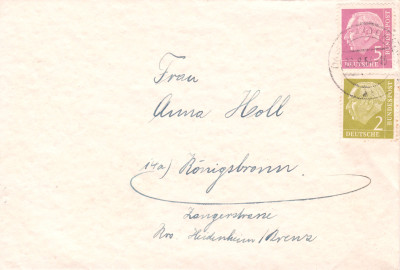 Frau
Anna Holl
14a) Königsbronn.
Zangerstrasse
Krs. Heidenheim/Brenz
5
DEUTSCHE
BUNDESPOST
2
DEUTSCHE
BUNDESPOST